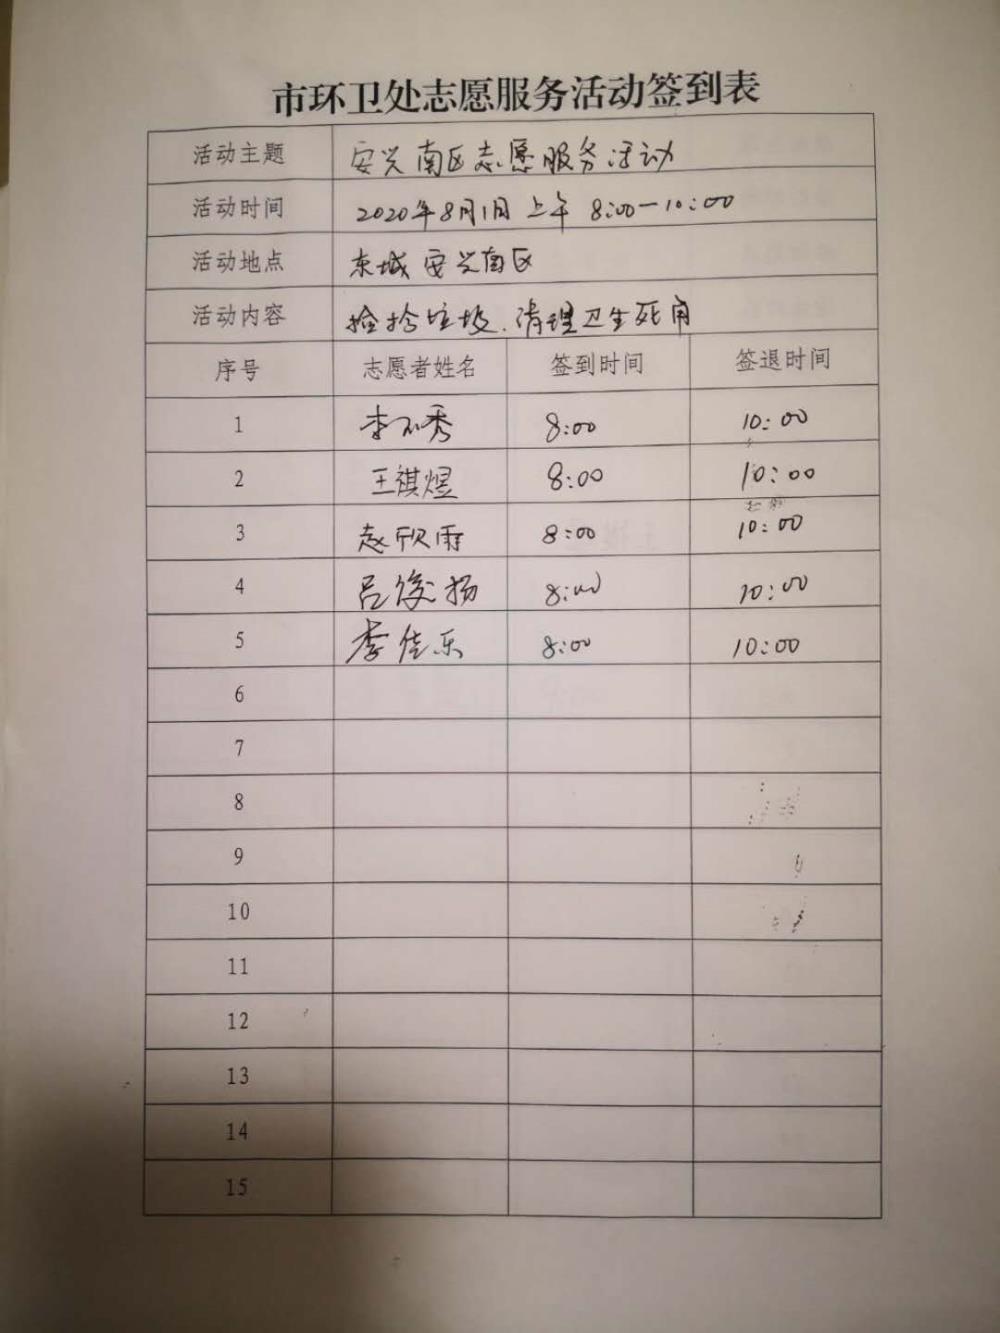 市环卫处志愿服务活动签到表
活动主题 安兴南区志愿服务活动
活动时间 2020年8月1日 上午 8:00-10:00
活动地点 东城安兴南区
活动内容 捡拾垃圾.清理卫生死角
序号 志愿者姓名 签到时间 签退时间
1 李不秀 8:00 10:00
2 王祺煜 8:00 10:00
3 赵欣雨 8:00 10:00
4 吕俊扬 8:00 10:00
5 李佳乐 8:00 10:00
6
7
8
9
10
11
12
13
14
15